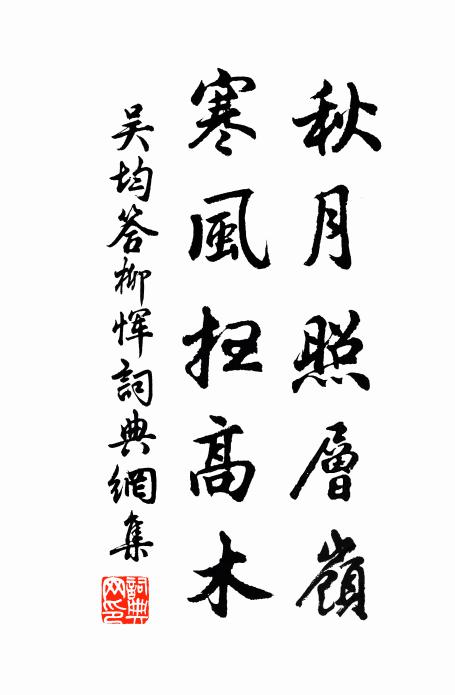 秋月照層嶺
寒風扫高木
吴均答柳恽詞典網集
詞典
网印